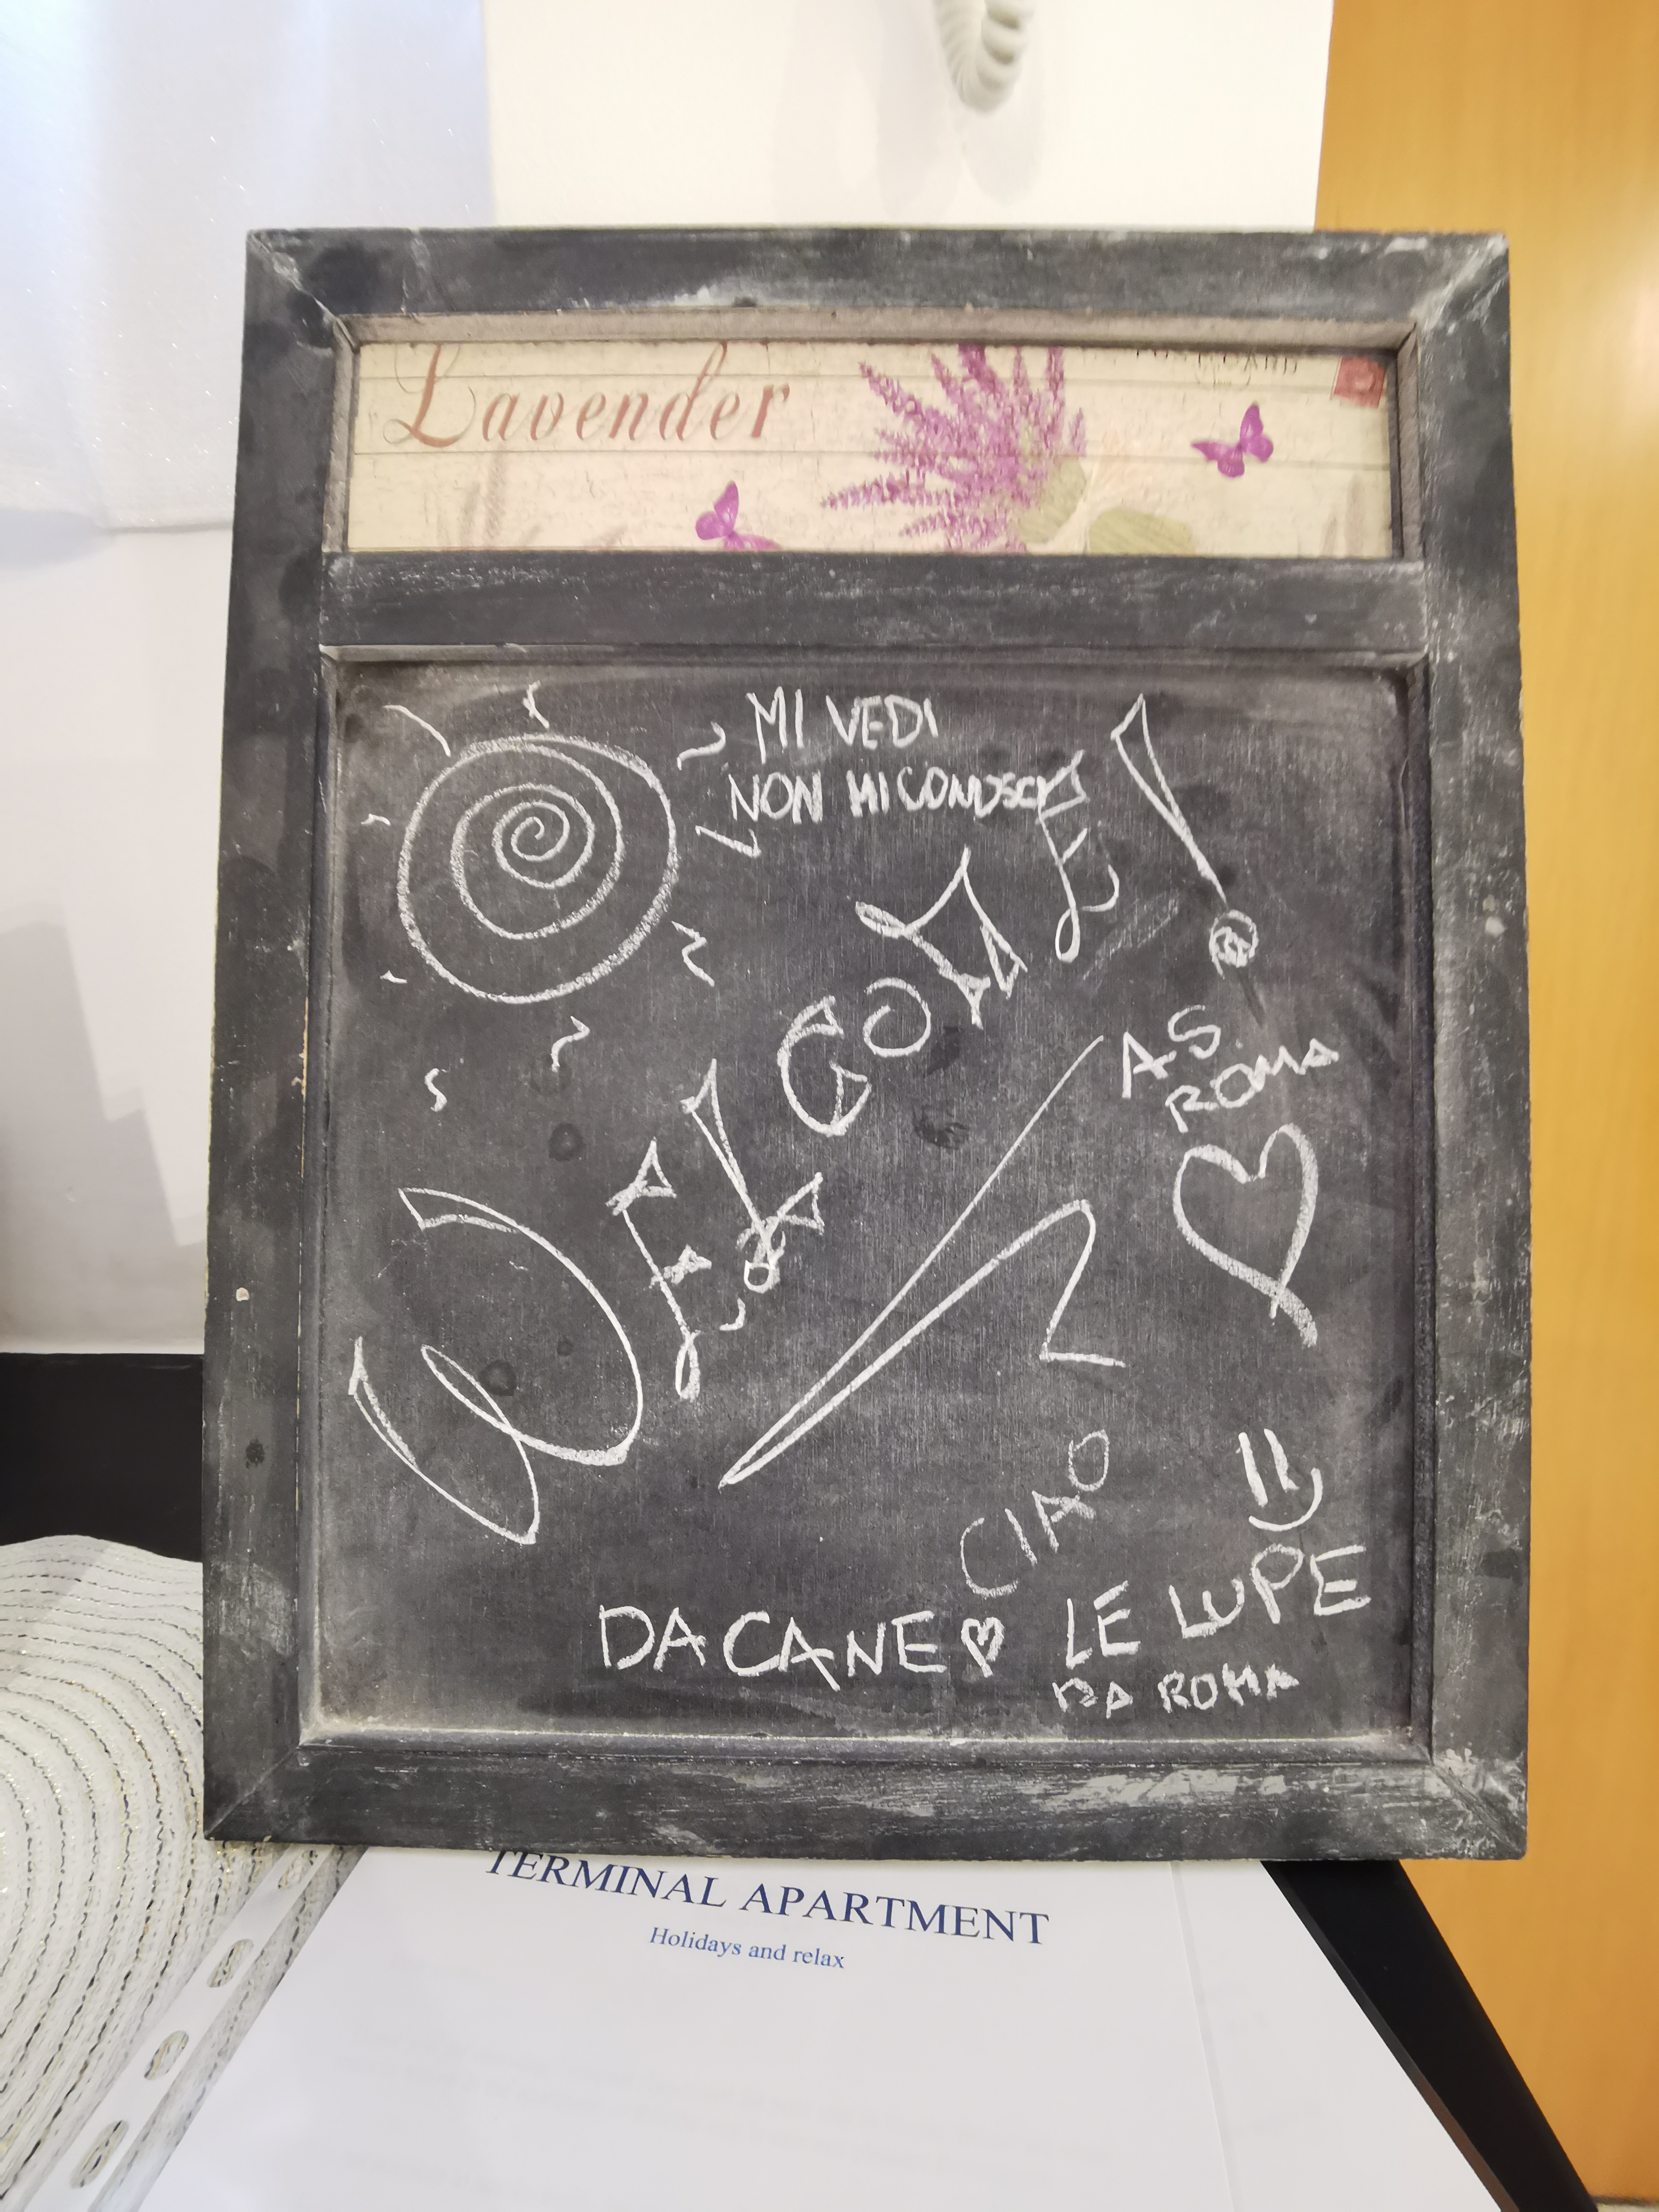 Lavender
MI VEDI
NON MI CONOSCI
WELCOME!
AS
ROMA
CIAO
DACANE
LE LUPE
DA ROMA
TERMINAL APARTMENT
Holidays and relax